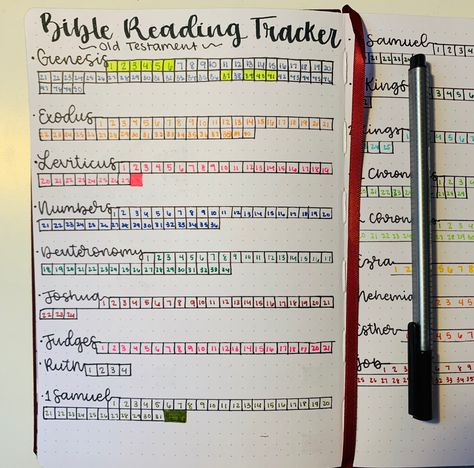 Bible Reading Tracker
~Old Testament~
·Genesis 1 2 3 4 5 6 7 8 9 10 11 12 13 14 15 16 17 18 19 20
21 22 23 24 25 26 27 28 29 30 31 32 33 34 35 36 37 38 39 40 41 42 43 44 45 46
47 48 49 50
·Exodus 1 2 3 4 5 6 7 8 9 10 11 12 13 14 15 16 17 18 19 20
21 22 23 24 25 26 27 28 29 30 31 32 33 34 35 36 37 38 39 40
·Leviticus 1 2 3 4 5 6 7 8 9 10 11 12 13 14 15 16 17 18 19
20 21 22 23 24 25 26 27
·Numbers 1 2 3 4 5 6 7 8 9 10 11 12 13 14 15 16 17 18 19 20
21 22 23 24 25 26 27 28 29 30 31 32 33 34 35 36
·Deuteronomy 1 2 3 4 5 6 7 8 9 10 11 12 13 14 15 16 17
18 19 20 21 22 23 24 25 26 27 28 29 30 31 32 33 34
·Joshua 1 2 3 4 5 6 7 8 9 10 11 12 13 14 15 16 17 18 19 20 21
22 23 24
·Judges 1 2 3 4 5 6 7 8 9 10 11 12 13 14 15 16 17 18 19 20 21
·Ruth 1 2 3 4
·1 Samuel 1 2 3 4 5 6 7 8 9 10 11 12 13 14 15 16 17 18 19 20
21 22 23 24 25 26 27 28 29 30 31
Samuel 1 2 3 4
21 22
Kings
Kings
24 25
Chron
Chron
Ezra
Nehemia
Esther
·Job